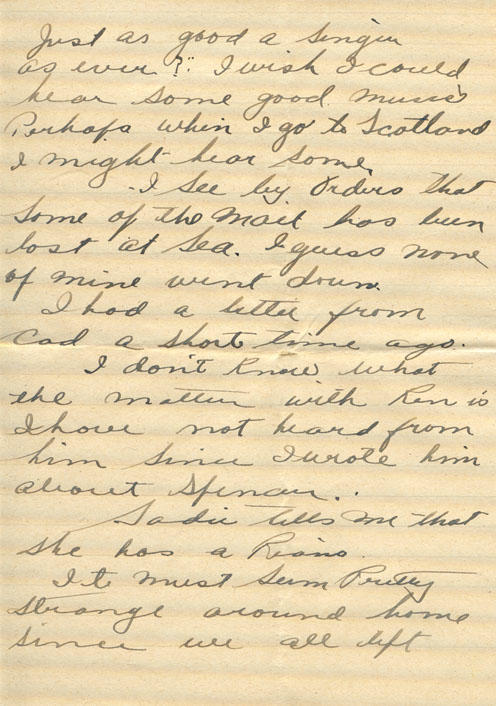 Just as good a singer
as ever?". I wish I could
hear some good music
Perhaps when I go to Scotland
I might hear some.
I see by orders that
some of the mail has been
lost at sea. I guess none
of mine went down.
I had a letter from
Cad a short time ago.
I don't know what
the matter with Ken is
I have not heard from
him since I wrote him
about
Sadie tells me that
she has a Piano.
It must seem Pretty
strange around home
since we all left